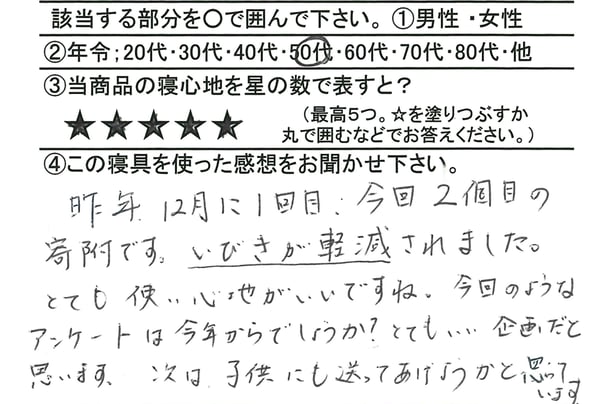 該当する部分を○で囲んで下さい。①男性・女性
②年令;20代・30代・40代・50代・60代・70代・80代・他
③当商品の寝心地を星の数で表すと?
★★★★★
(最高5つ。☆を塗りつぶすか
丸で囲むなどでお答えください。)
④この寝具を使った感想をお聞かせ下さい。
昨年12月に1回目、今回2個目の
寄附です。いびきが軽減されました。
とても使い心地がいいですね。今回のような
アンケートは今年からでしょうか?とてもいい企画だと
思います。次は子供にも送ってあげようかと思って
います